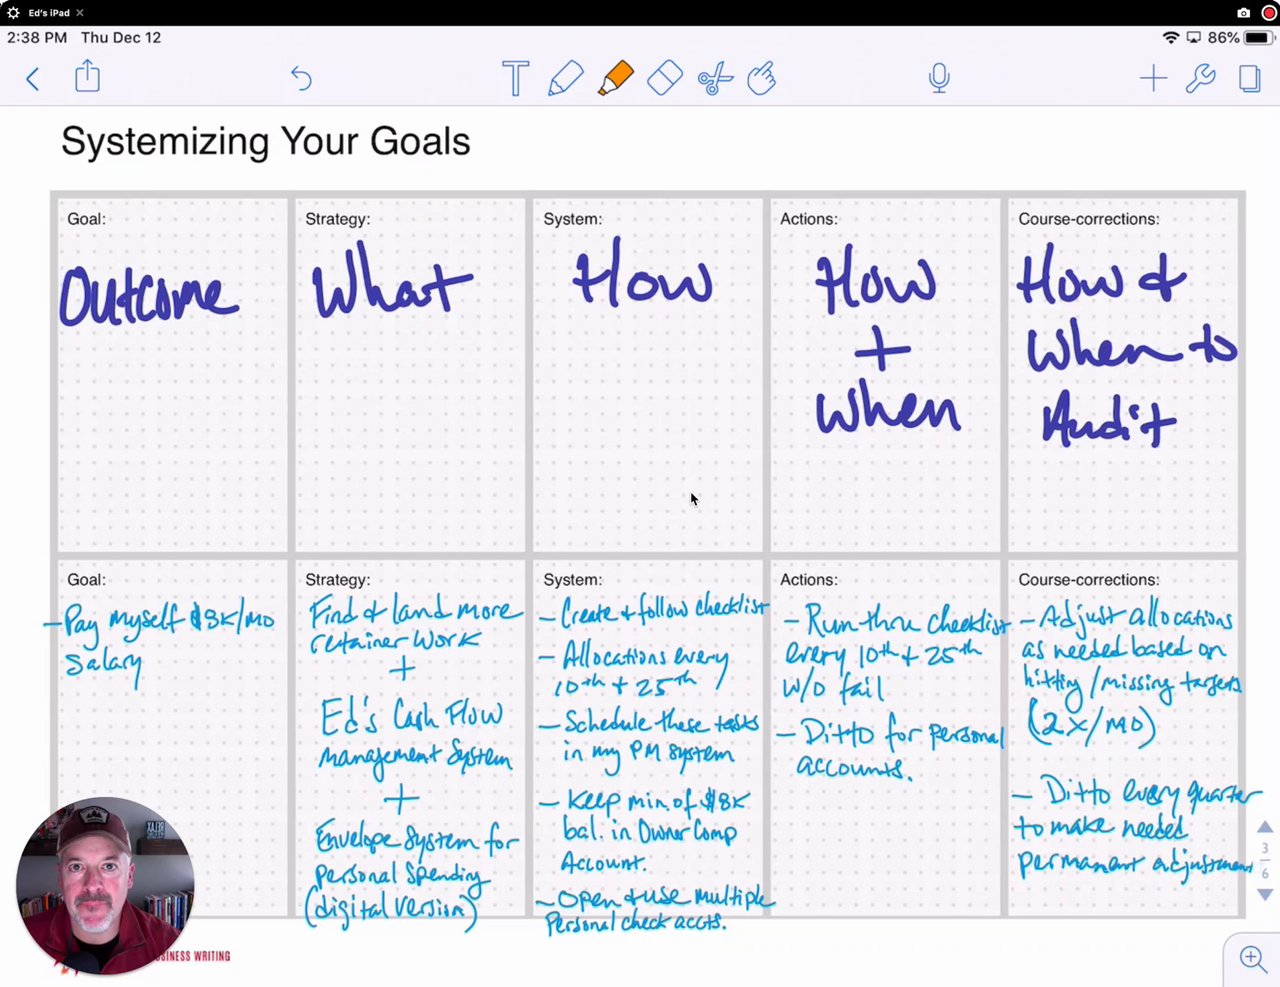 Ed's iPad
2:38 PM Thu Dec 12
86%
T
Systemizing Your Goals
Goal:
Outcome
Strategy:
What
System:
How
Actions:
How
+
When
Course-corrections:
How &
When to
Audit
Goal:
- Pay myself $8K/mo
salary
Strategy:
Find & land more
retainer work
+
Ed's Cash Flow
management system
+
Envelope system for
personal spending
(digital version)
System:
- Create & follow checklist
- Allocations every
10th + 25th
- Schedule these tasks
in my PM system
- Keep min. of $8K
bal. in Owner Comp
Account.
- Open & use multiple
personal check accts.
Actions:
- Run thru checklist
every 10th + 25th
w/o fail
- Ditto for personal
accounts.
Course-corrections:
- Adjust allocations
as needed based on
hitting/missing targets
(2X/MO)
- Ditto every quarter
to make needed
permanent adjustment
3
6
SINESS WRITING